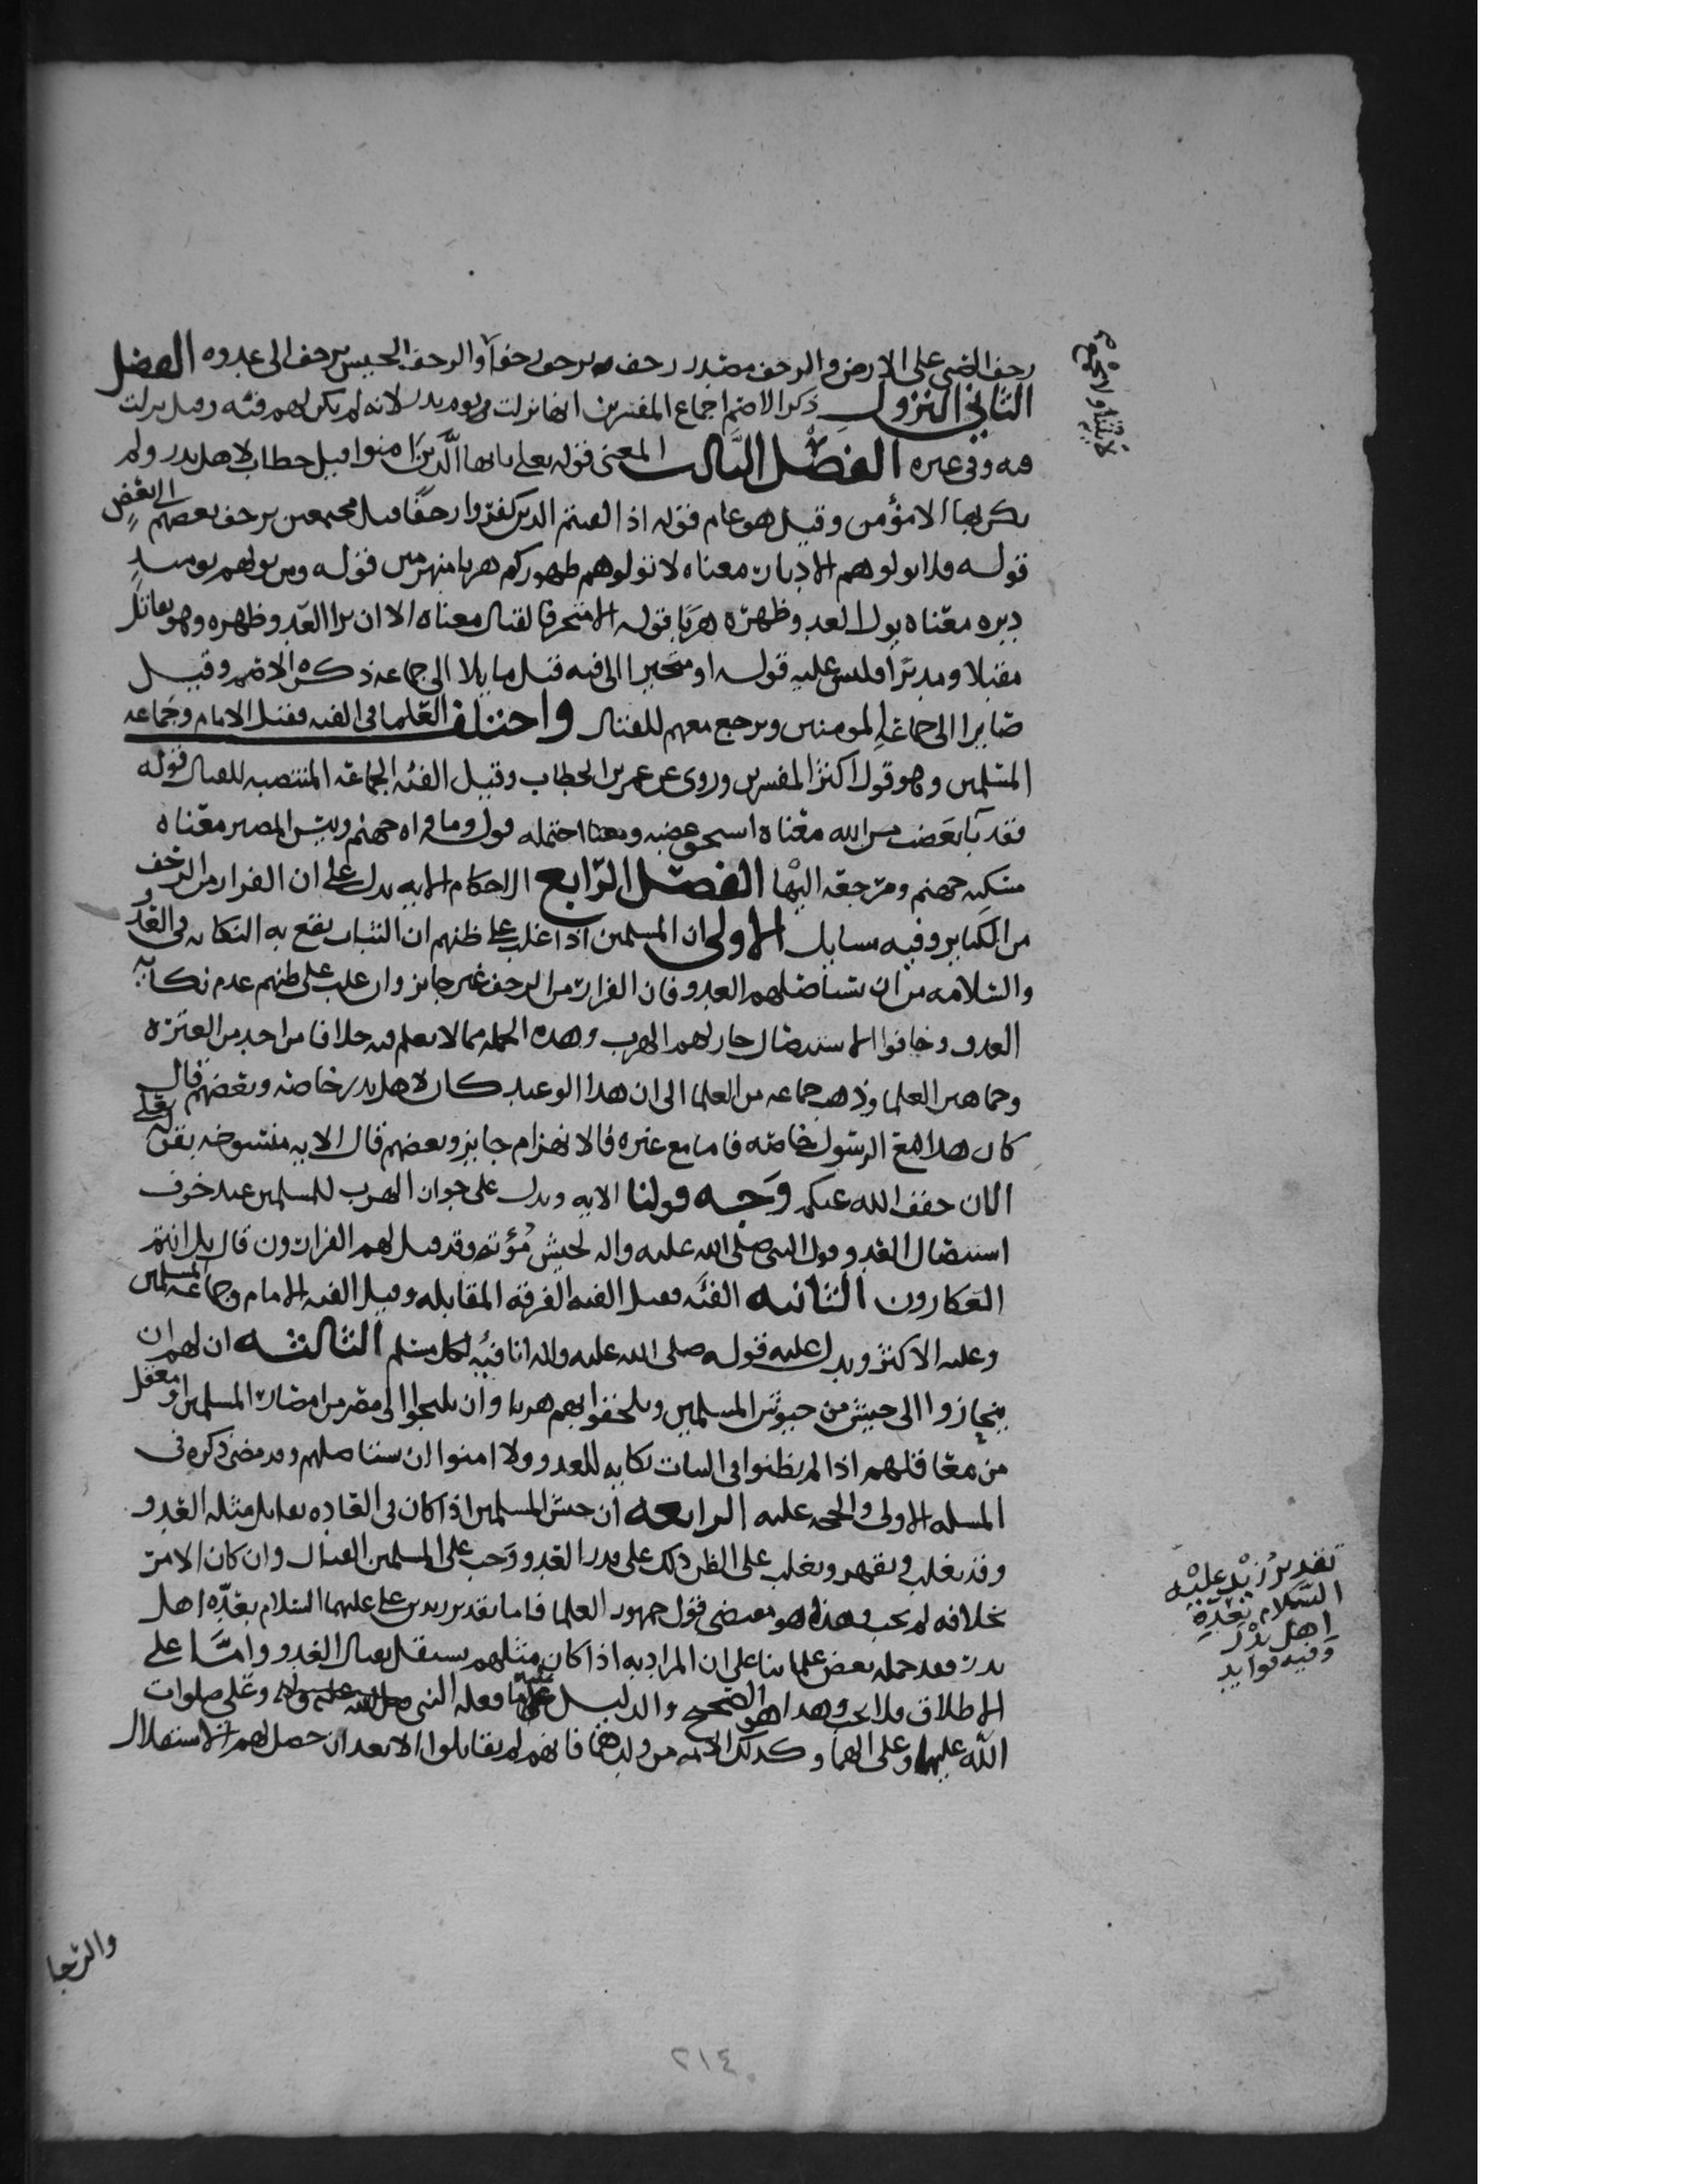 زحف الصبي على الارض والزحف مصدر زحف يزحف زحفا والزحف الجيش يزحف الى عدوه الفصل
الثاني النزول ذكر الاصم اجماع المفسرين انها نزلت في يوم بدر لانه لم يكن لهم فئه وقيل نزلت
فيه وفي غيره الفصل الثالث المعنى قوله تعلى يايها الذين امنوا قيل خطاب لاهل بدر ولم
يكن بها الا مؤمن وقيل هو عام قوله اذا لقيتم الذين كفروا زحفا قيل مجتمعين يزحف بعضهم الى بعض
قوله فلا تولوهم الادبار معناه لا تولوهم ظهوركم هربا منهزمين قوله ومن يولهم يوميذ
دبره معناه يولي العدو ظهره هربا قوله الا متحرفا لقتال معناه الا ان يرا العدو ظهره وهو يقاتل
مقبلا ومدبرا فليس عليه قوله او متحيزا الى فيه قيل مايلا الى جماعه ذكره الاصم وقيل
صايرا الى جماعة المومنين ويرجع معهم للقتال واختلف العلما في الفيه فقيل الامام وجماعه
المسلمين وهو قول اكثر المفسرين وروي عن عمر بن الخطاب وقيل الفئه الجماعه المنتصبه للقتال قوله
فقد باء بغضب من الله معناه استحق غضبه ومعنا احتمله قوله وماواه جهنم وبيس المصير معناه
مسكنه جهنم ومرجعه اليها الفصل الرابع الاحكام الايه يدل على ان الفرار من الزحف
من الكباير وفيه مسايل الاولى ان المسلمين اذا غلب على ظنهم ان الثبات يقع به النكايه في العدو
والسلامه من ان يستاصلهم العدو فان الفرار من الزحف غير جايز وان غلب على ظنهم عدم نكاية
العدو وخافوا الاستيصال جاز لهم الهرب وهذه الجمله مما لا نعلم فيه خلافا من احد من العترة
وجماهير العلما وذهب جماعه من العلما الى ان هذا الوعيد كان لاهل بدر خاصه وبعضهم قال
كان هذا مع الرسول خاصه فاما مع غيره فالانهزام جايز وبعضهم قال الايه منسوخه بقوله تعلى
الان خفف الله عنكم وجه قولنا الايه ويدل على جواز الهرب للمسلمين عند خوف
استيصال العدو قول النبي صلى الله عليه واله لجيش مؤته وقد قيل لهم الفرارون قال بل انتم
العكارون الثانيه الفئه فقيل الفيه الفرقه المقابله وقيل الفيه الامام وجماعة المسلمين
وعليه الاكثر ويدل عليه قوله صلى الله عليه واله انا فيه لكل مسلم الثالثه ان لهم ان
ينحازوا الى جيش من جيوش المسلمين ويلحقوا بهم هربا وان يلجوا الى مصر من امصار المسلمين او معقل
من معاقلهم اذا لم يظنوا في الثبات نكايه للعدو ولا امنوا ان يستاصلهم وقد مضى ذكره في
المسله الاولى والحجه عليه الرابعه ان جيش المسلمين اذا كان في العاده يقابل مثله العدو
وقد يغلب ويقهر ويغلب على الظن ذلك على قدر العدو وجب على المسلمين القتال وان كان الامر
بخلافه لم يجب وهذا هو مقتضى قول جمهور العلما فاما تقدير زيد بن علي عليهما السلام بعدة اهل
بدر فقد حمله بعض علماينا على ان المراد به اذا كان مثلهم يستقل بقتال العدو واما على
الاطلاق فلا يجب وهذا هو الصحيح والدليل عليه ما فعله النبي صلى الله عليه وعلي صلوات
الله عليهما وعلى الهما وكذلك الايمه من ولدهما فانهم لم يقاتلوا الا بعد ان حصل لهم الاستقلال
تقدير زيد عليه
السلام بعدة
اهل بدر
وفيه فوايد
والرجا
٢١٤